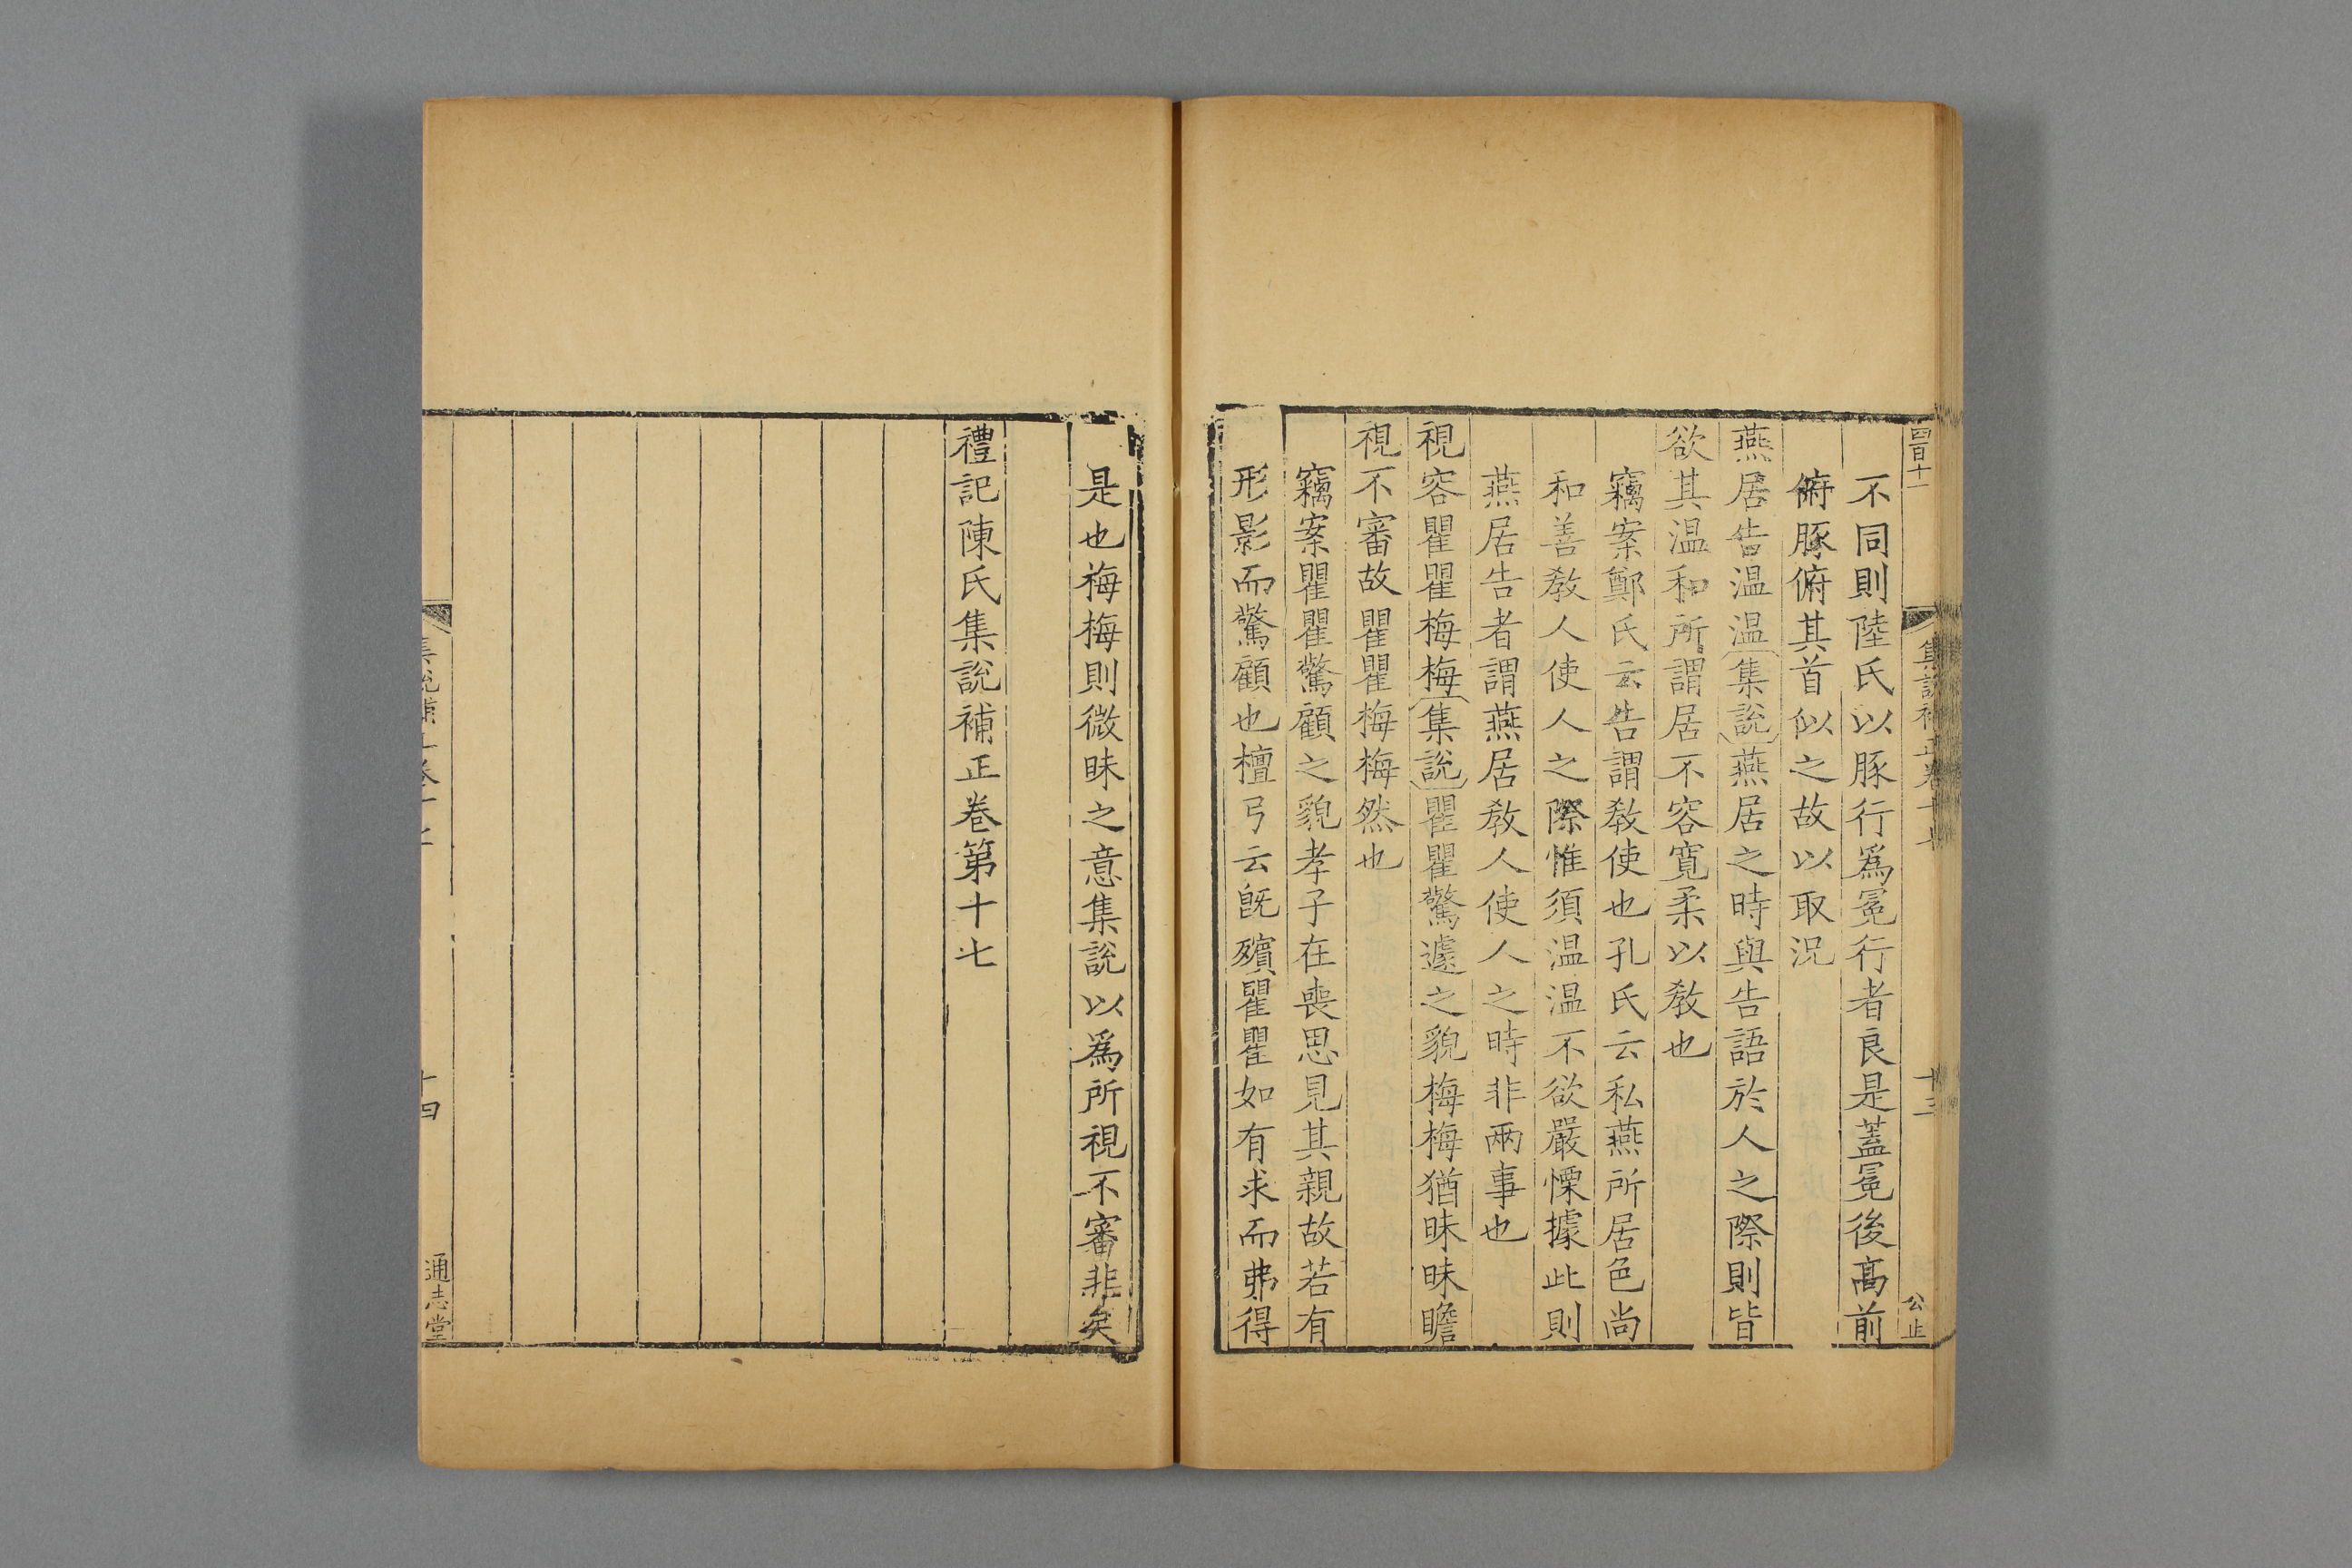 四百十一
集說補正卷十七
十三
公止
不同則陸氏以豚行爲冕行者良是蓋冕後高前
俯豚俯其首似之故以取況
燕居告温温集說燕居之時與告語於人之際則皆
欲其温和所謂居不容寛柔以教也
竊案鄭氏云告謂教使也孔氏云私燕所居色尚
和善教人使人之際惟須温温不欲嚴慄據此則
燕居告者謂燕居教人使人之時非兩事也
視容瞿瞿梅梅集說瞿瞿驚遽之貌梅梅猶昧昧瞻
視不審故瞿瞿梅梅然也
竊案瞿瞿驚顧之貌孝子在喪思見其親故若有
形影而驚顧也檀弓云旣殯瞿瞿如有求而弗得
是也梅梅則微昧之意集說以爲所視不審非矣
禮記陳氏集說補正卷第十七
集說補正卷十七
十四
通志堂